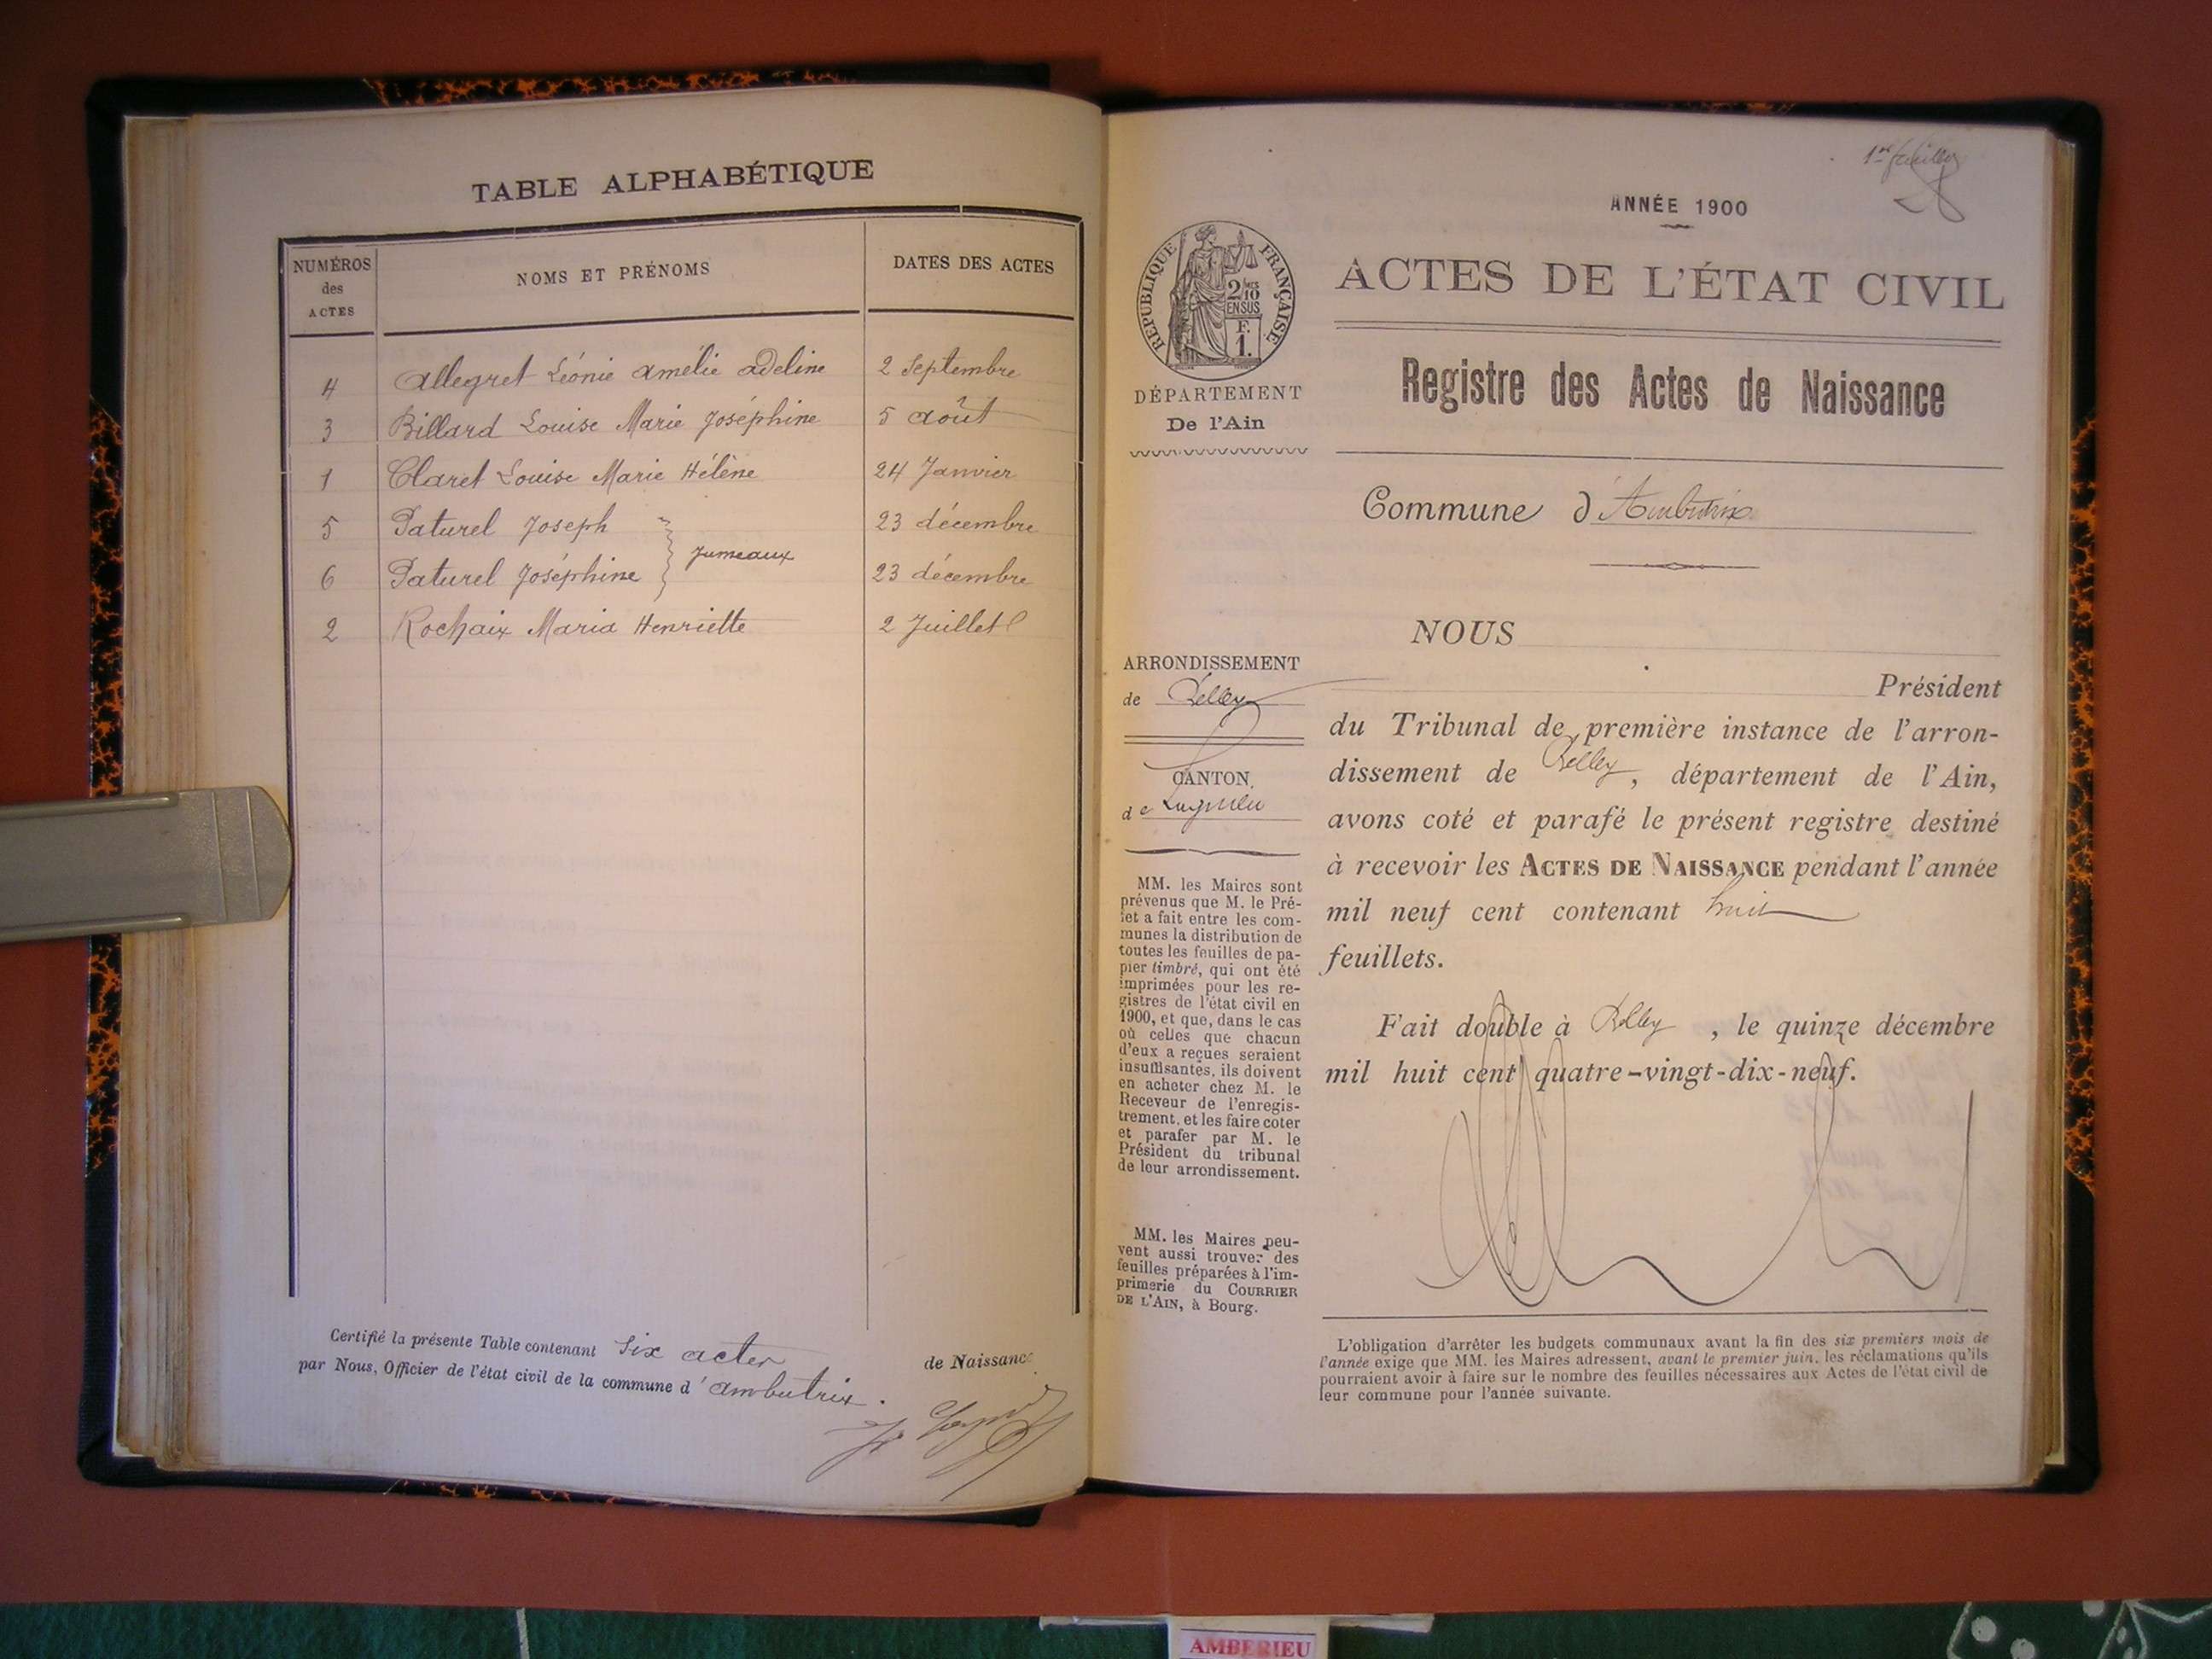 TABLE ALPHABÉTIQUE
NUMÉROS des ACTES
NOMS ET PRÉNOMS
DATES DES ACTES
4 Allegret Léonie Amélie Adeline 2 Septembre
3 Billard Louise Marie Joséphine 5 août
1 Claret Louise Marie Hélène 24 Janvier
5 Paturel Joseph 23 décembre
Jumeaux
6 Paturel Joséphine 23 décembre
2 Rochaix Maria Henriette 2 Juillet
Certifié la présente Table contenant Six actes de Naissance
par Nous, Officier de l'état civil de la commune d'ambutrix.
1er feuillet
ANNÉE 1900
RÉPUBLIQUE FRANÇAISE
2/10 MES
EN SUS
F.
1.
DÉPARTEMENT
De l'Ain
ACTES DE L'ÉTAT CIVIL
Registre des Actes de Naissance
Commune d'Ambutrix
ARRONDISSEMENT
de Belley
CANTON
de Lagnieu
MM. les Maires sont
prévenus que M. le Pré-
fet a fait entre les com-
munes la distribution de
toutes les feuilles de pa-
pier timbré, qui ont été
imprimées pour les re-
gistres de l'état civil en
1900, et que, dans le cas
où celles que chacun
d'eux a reçues seraient
insuffisantes, ils doivent
en acheter chez M. le
Receveur de l'enregis-
trement, et les faire coter
et parafer par M. le
Président du tribunal
de leur arrondissement.
MM. les Maires peu-
vent aussi trouver des
feuilles préparées à l'im-
primerie du COURRIER
DE L'AIN, à Bourg.
NOUS
Président
du Tribunal de première instance de l'arron-
dissement de Belley, département de l'Ain,
avons coté et parafé le présent registre destiné
à recevoir les ACTES DE NAISSANCE pendant l'année
mil neuf cent contenant huit
feuillets.
Fait double à Belley, le quinze décembre
mil huit cent quatre-vingt-dix-neuf.
L'obligation d'arrêter les budgets communaux avant la fin des six premiers mois de
l'année exige que MM. les Maires adressent, avant le premier juin, les réclamations qu'ils
pourraient avoir à faire sur le nombre des feuilles nécessaires aux Actes de l'état civil de
leur commune pour l'année suivante.
AMBERIEU